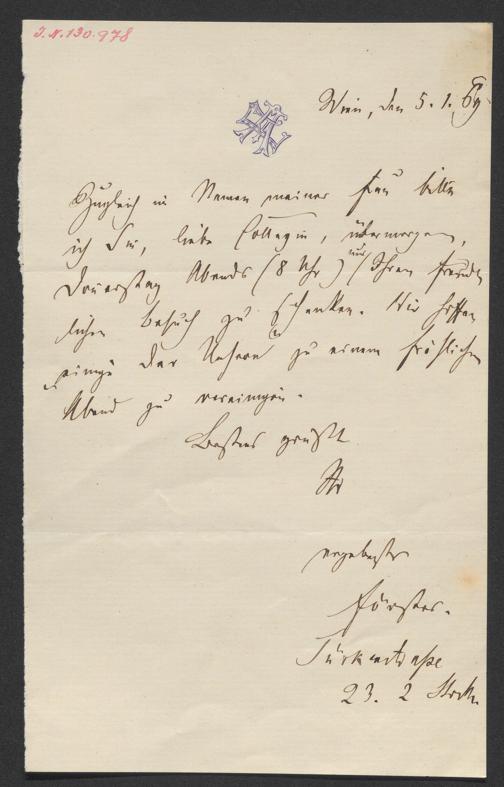 J.N. 130.978
Wien, den 5. 1. 69
Zugleich im Namen meiner Frau bitte
ich Sie, liebe Collegin, übermorgen,
Donerstag Abends (8 Uhr) uns Ihren freund-
lichen Besuch zu schenken. Wir hoffen
einige der Unseren zu einem fröhlichen
Abend zu vereinigen.
Bestens grüßt
Ihr
ergebenster
Förster.
Türkenstraße
23. 2 Stock